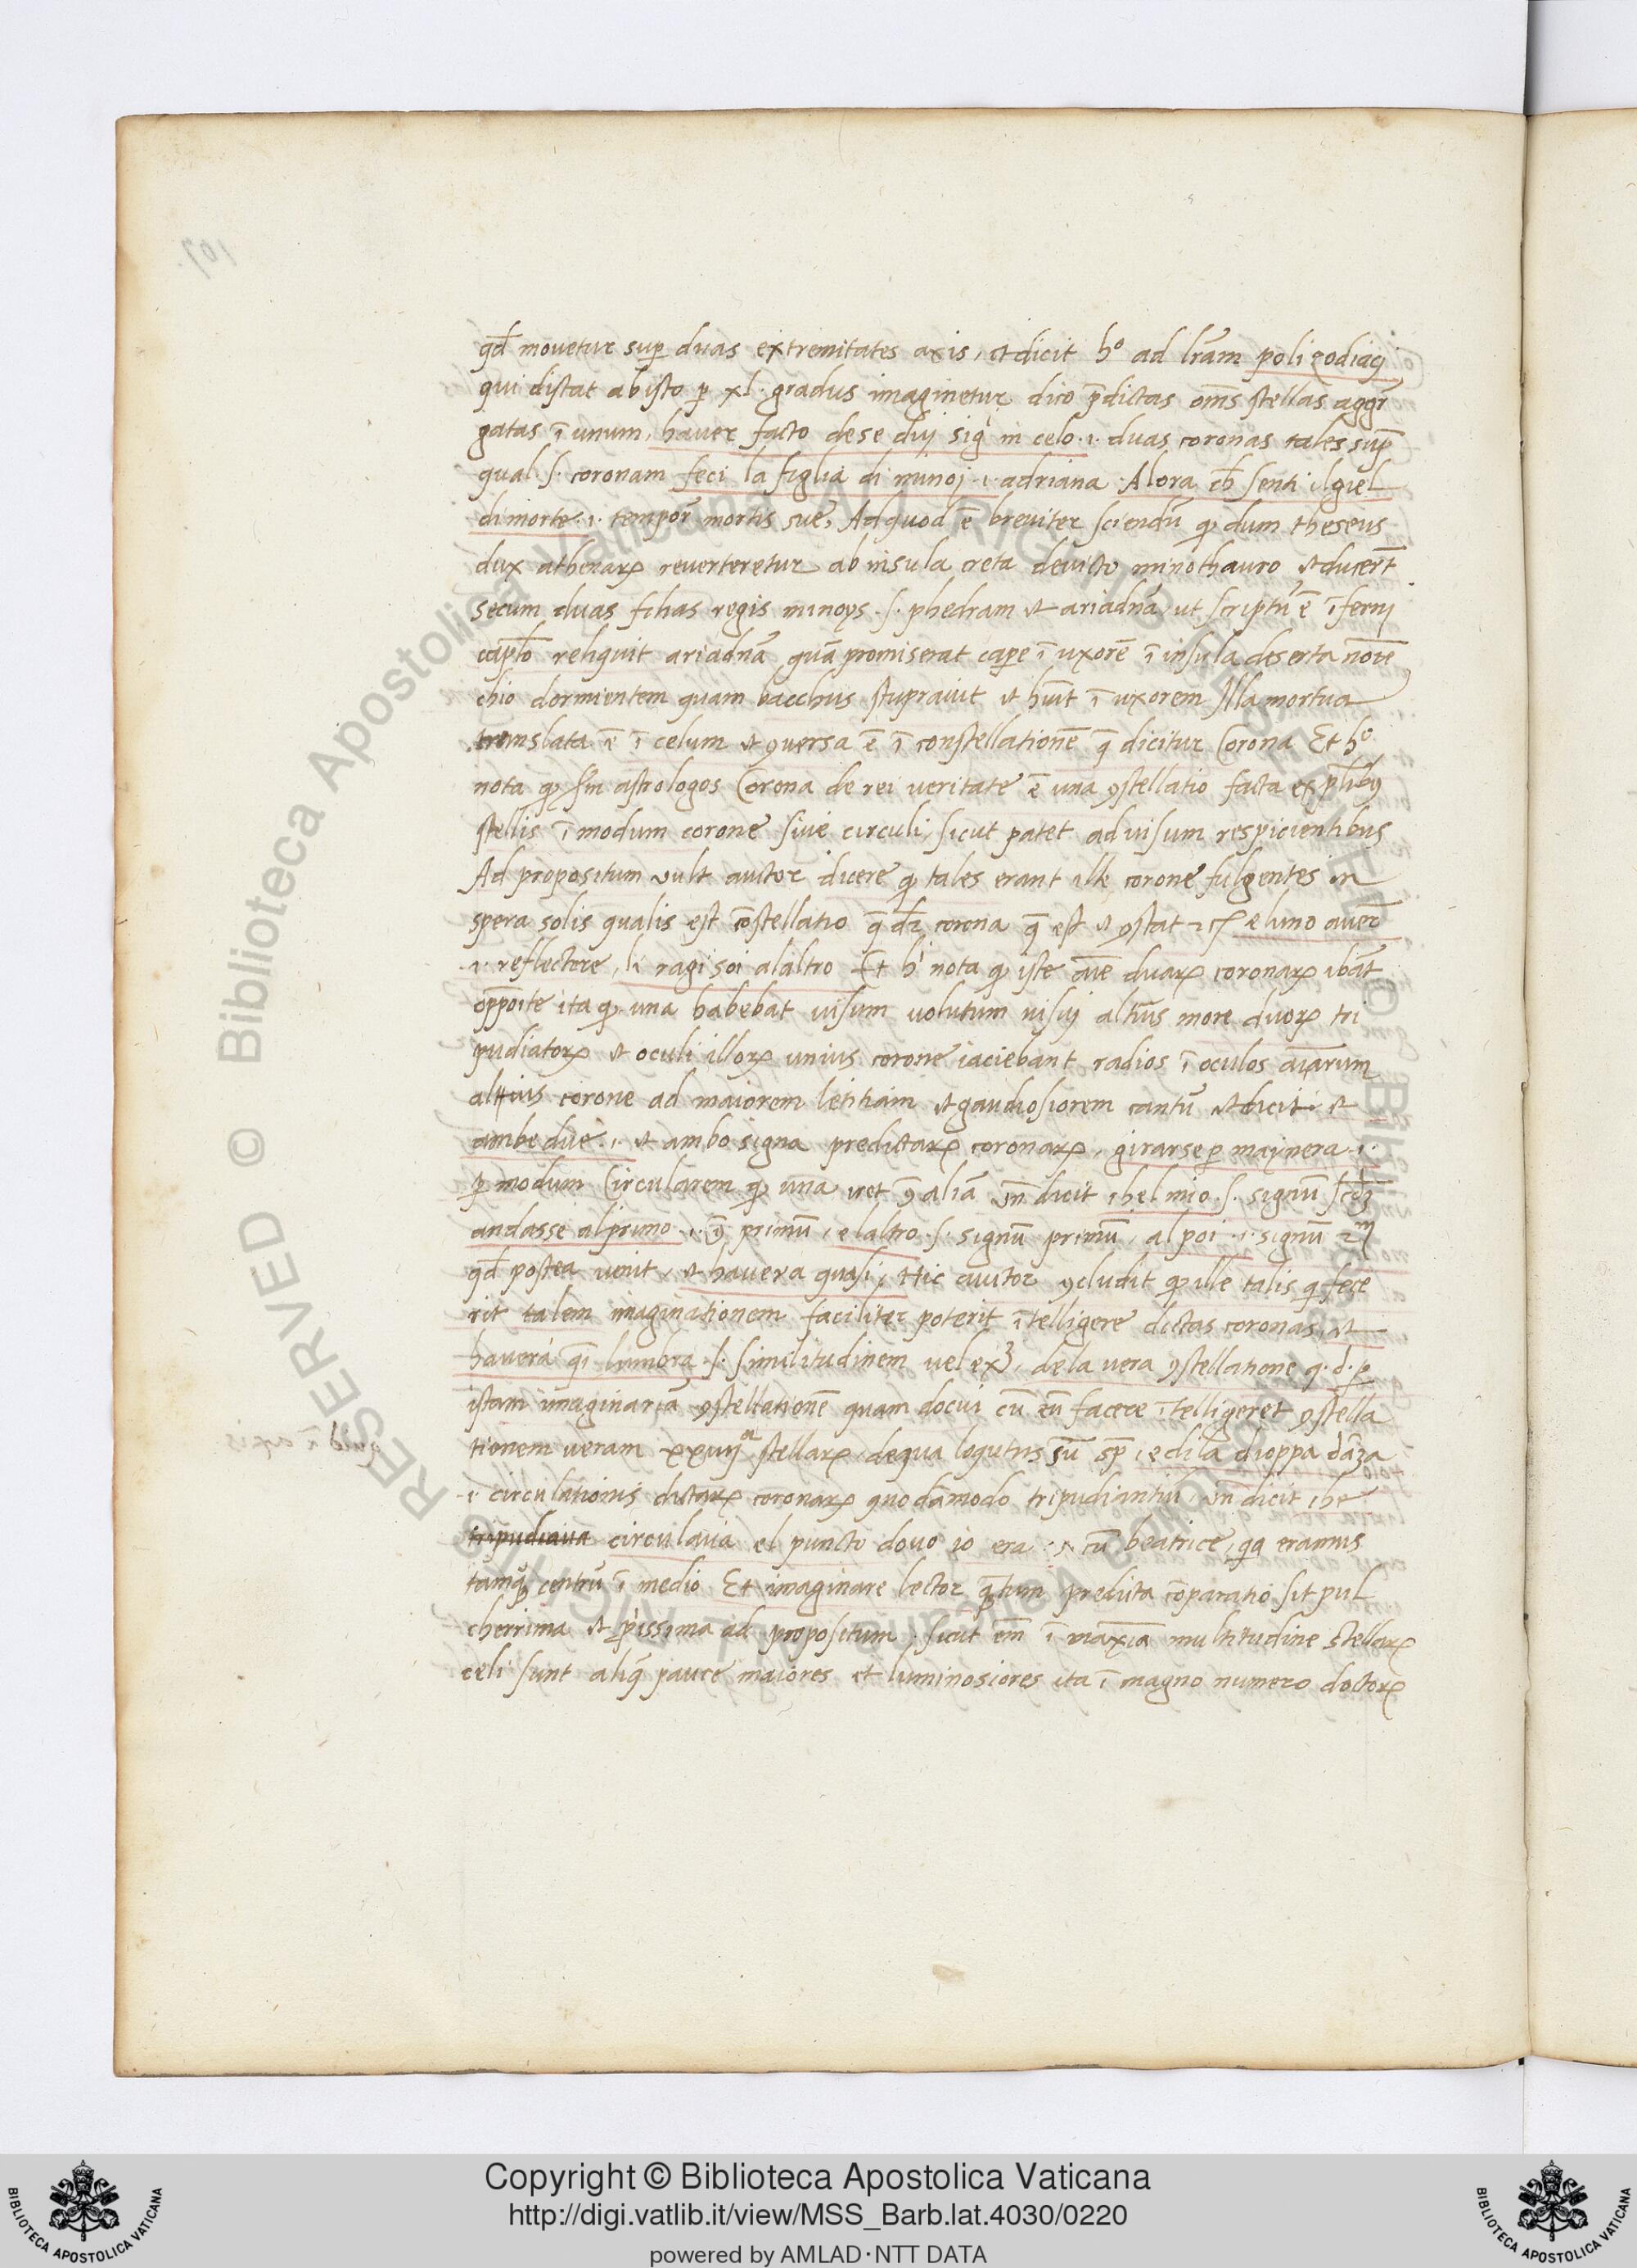 qd̄ mouetur sup̱ duas extremitates axis, et dicit hͦ ad lr̄am poli zodiaci
qui distat ab isto ꝑ xl. gradus imaginetur dico p̄dictas om̄s stellas aggr̄
gatas ī unum, hauer facto de se duj sigͥ in celo .i. duas coronas tales sup̄
qual .s. coronam feci la figlia di minoj .i. adriana Alora ch̄ senti ilgiel
di morte .i. tempor̄ mortis sue, Ad quod ē breuiter sciendū ꝙ dum theseus
dux athenaꝝ reuerteretur ab insula creta deuicto minothauro et ducer̄t
secum duas filias regis minoys .s. phedram et ariadnā, ut scriptū ē īfernj
cap̄lo reliquit ariadnā quā promiserat cape ī uxorē ī insula deserta nom̄e
chio dormientem quam bacchus stuprauit et hūit ī uxorem Illa mortua
translata ē ī celum et ꝯuersa ē ī constellationē q̄ dicitur Corona Et hͦ
nota ꝙ sm̄ astrologos Corona de rei ueritate ē una ꝯstellatio facta ex pl̄ibꝰ
stellis ī modum corone siue circuli, sicut patet ad uisum respicientibus
Ad propositum uult auctor dicere ꝙ tales erant ille corone fulgentes in
spera solis qualis est cōstellatio q̄ dr̄ corona q̄ est et ꝯstat e luno auer̄
.i. reflectere, li ragi soi alaltro Et hͥ nota ꝙ iste aīe duaꝝ coronaꝝ ibāt
opp̄oite ita ꝙ una habebat uisum uolutum uisuj alt̄ius more duoꝝ tri
pudiatoꝝ et oculi illoꝝ unius corone iaciebant radios ī oculos aīarum
alterius corone ad maiorem letitiam et gaudiosiorem cantū et dicit. et
ambe due .i. et ambo signa predictaꝝ coronaꝝ, girarse ꝑ maynera .i.
ꝑ modum Circularem ꝙ una iret ꝯ̄ aliā un̄ dicit, che l mio .s. signū
andasse al primo .i. ꝯ̄ primū, e laltro .s. signū primū, al poi .i. signū 2ᵐ
qd̄ postea uenit, et hauera quasi, Hic auctor ꝯcludit ꝙ ille talis qͥ fece
rit talem imaginationem faciliter poterit ītelligere dictas coronas, et
hauerà qͣi lumbra .s. similitudinem uel exꝫ, de la uera ꝯstellatione q. d. ꝑ
istam imaginariā ꝯstellationē quam docui cū eū facere ītelligeret ꝯstella
tionem ueram xxiiijᵒʳ stellaꝝ, de qua loqutus sū sp̄, e di la dioppa dāza
.i. circulationis dictaꝝ coronaꝝ quodāmodo tripudiantiū, un̄ dicit, che
tripudiaua circulaua el puncto douo io era .i. cū beatrice, qͣ eramus
tamqͣ centrū ī medio Et imaginare lector qͣtum predicta cōparatio sit pul
cherrima et ꝓp̱issima ad propositum. sicut em̄ ī maxīa multitudine stellaꝝ
celi sunt aliq̄ pauce maiores et luminosiores ita ī magno numero doctoꝝ
RESERVED © Biblioteca Apostolica Vaticana. ALL RIGHTS RESERVED © Biblioteca Apostolica Vaticana. ALL RIGHTS
Copyright © Biblioteca Apostolica Vaticana
http://digi.vatlib.it/view/MSS_Barb.lat.4030/0220
powered by AMLAD·NTT DATA
BIBLIOTECA APOSTOLICA VATICANA
BIBLIOTECA APOSTOLICA VATICANA